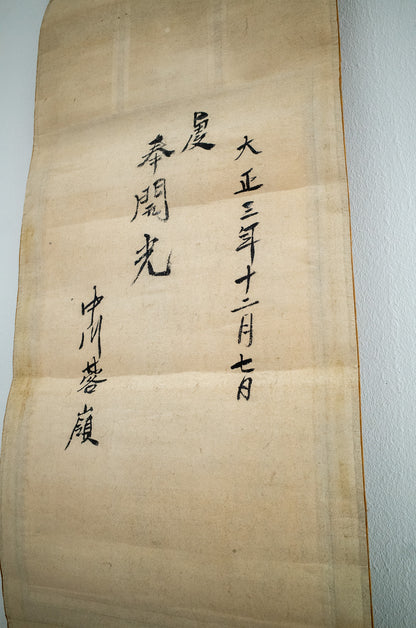 大正三年十二月七日
虔
奉開光
中川蓉嶺